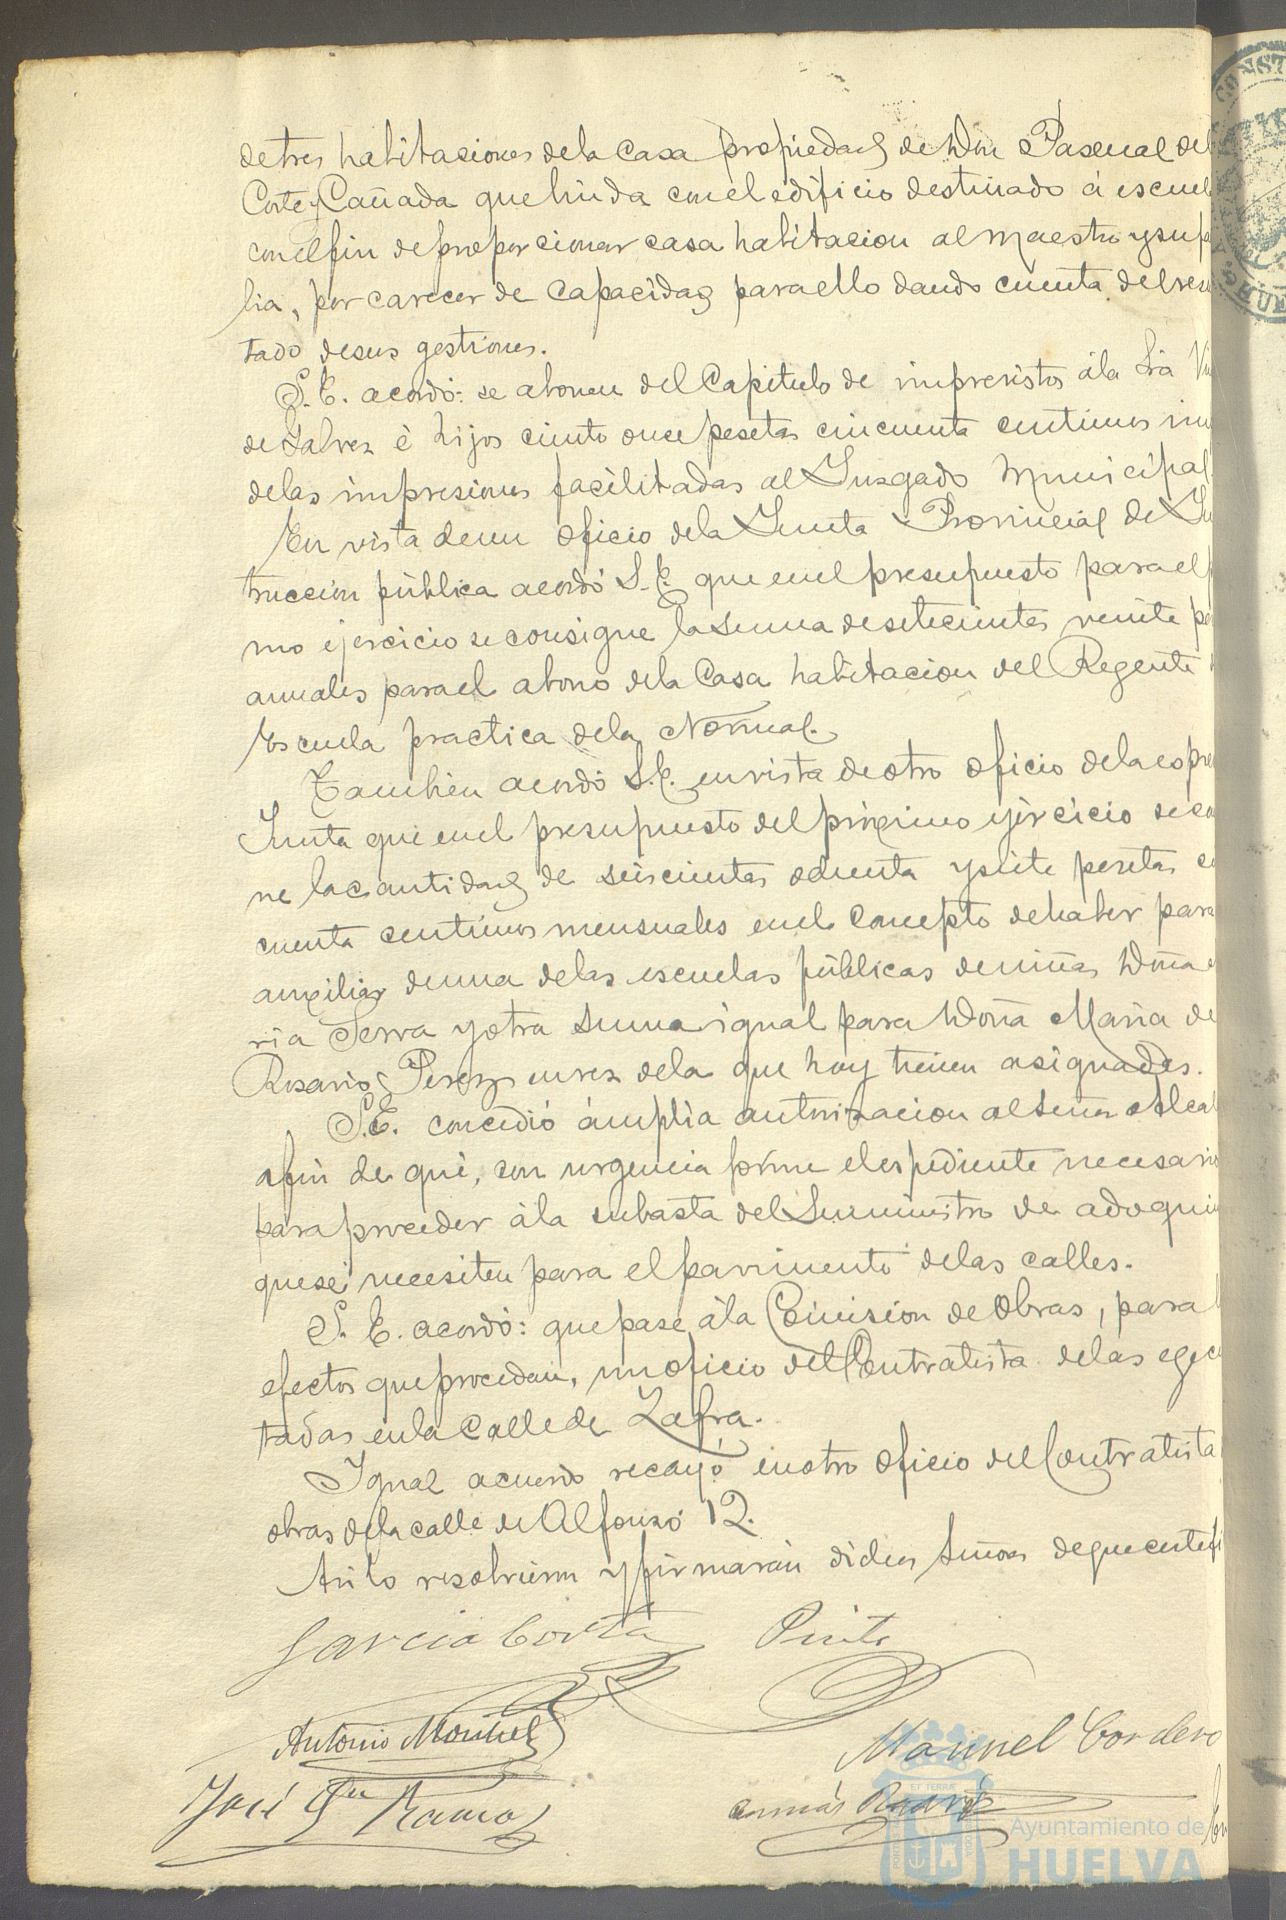 de tres habitaciones de la Casa propiedad de Don Pascual del
Corte y Cañada que linda con el edificio destinado á escuel
con el fin de proporcionar casa habitacion al maestro y su f
lia, por carecer de capacidad para ello dando cuenta del resu
tado de sus gestiones.
S. E. acordó: se abonen del Capitulo de imprevistos á la Sra Viu
de Galvez é hijos ciento once pesetas cincuenta centimos im
de las impresiones facilitadas al Juzgado Municipal
En vista de un oficio de la Junta Provincial de In
truccion pública acordó S. E. que en el presupuesto para el p
mo ejercicio se consigne la suma de setecientas veinte pe
anuales para el abono de la Casa habitacion del Regente
Escuela practica de la Normal.
Tambien acordó S. E. en vista de otro oficio de la espre
Junta que en el presupuesto del próximo ejercicio se con
ne la cantidad de seiscientas ochenta y siete pesetas ci
cuenta centimos mensuales en el concepto de haber para
auxiliar de una de las escuelas públicas de niñas Doña
ria Serra y otra suma igual para Doña Maria de
Rosario Perez en vez de la que hoy tienen asignadas.
S. E. concedió ámplia autorizacion al Señor Alcal
afin de que, con urgencia forme el espediente necesario
para proceder á la subasta del Suministro de adoquin
que se necesiten para el pavimento de las calles.
S. E. acordó: que pase á la Comision de Obras, para l
efectos que procedan, un oficio del Contratista de las egecu
tadas en la Calle de Zafra.
Igual acuerdo recayó en otro oficio del Contratista
obras de la calle de Alfonso 12.
Asi lo resolvieron y firmarán dichos Señores de que certifi
Garcia Cortá Pinto
Antonio Montiel
Manuel Cordero
José Ramos
Tomás
Ayuntamiento de
HUELVA